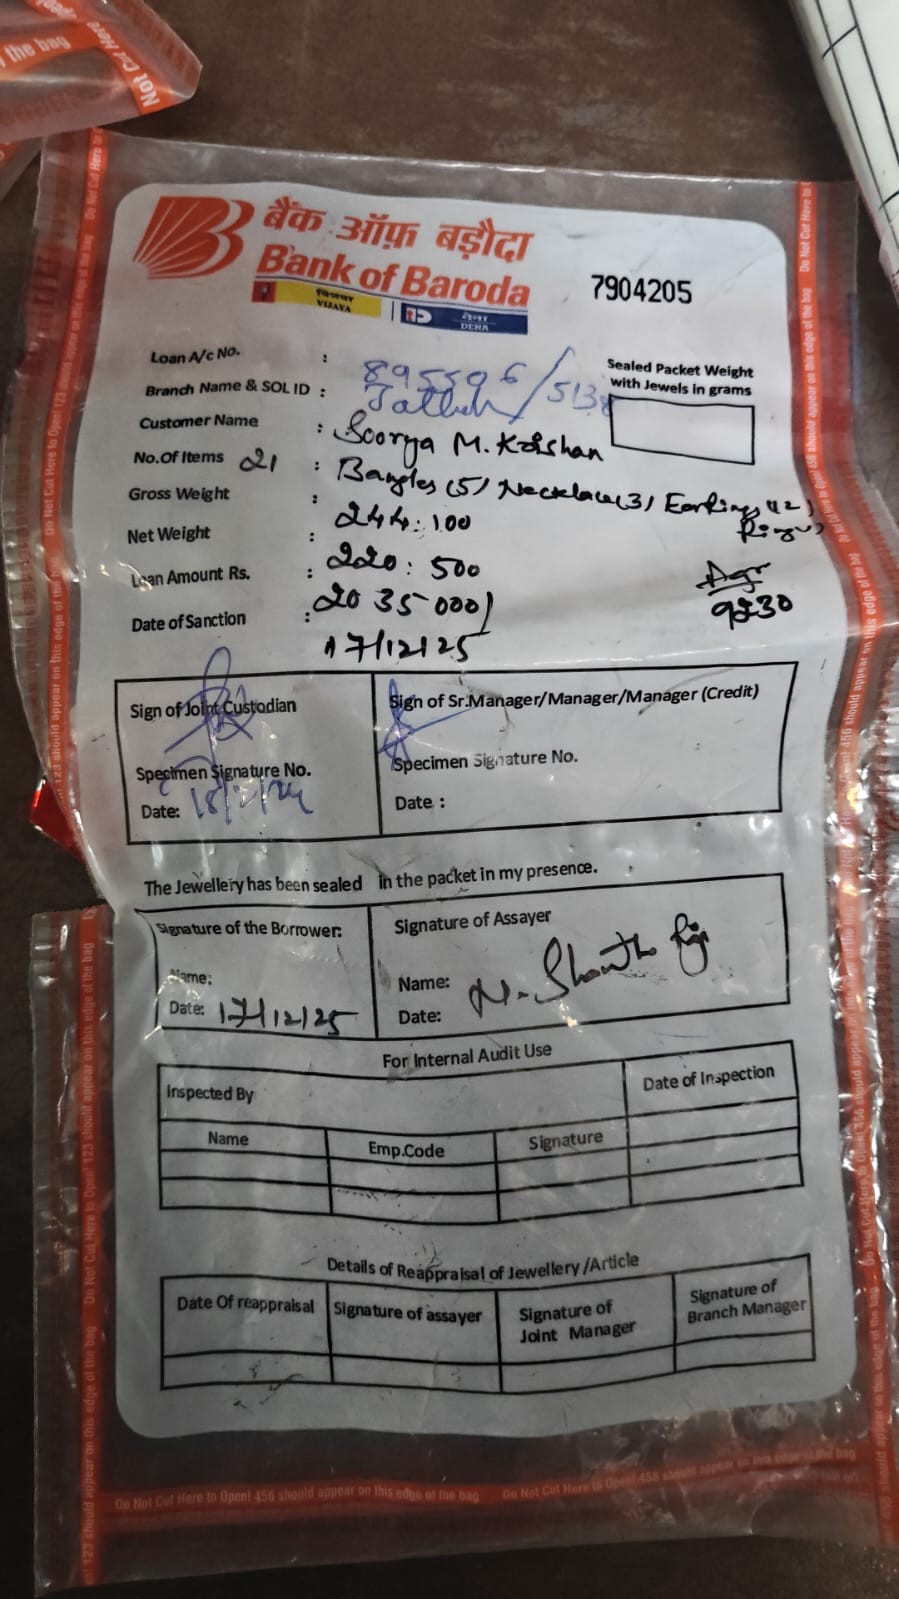 the bag
Not Cut Here
बैंक ऑफ़ बड़ौदा
Bank of Baroda
विजया
VIJAYA
देना
DENA
7904205
Loan A/c No. : 895596
Sealed Packet Weight
with Jewels in grams
Branch Name & SOL ID : / 5138
Customer Name : Soorya M. Krishan
No.Of Items 21 : Bangles (5) Necklace (3) Earrings (12)
Ring
Gross Weight : 244.100
Net Weight : 220:500
Loan Amount Rs. : 20 35 000/
9230
Date of Sanction : 17/12/25
Sign of Joint Custodian
Sign of Sr.Manager/Manager/Manager (Credit)
Specimen Signature No.
Specimen Signature No.
Date:
Date :
The Jewellery has been sealed in the packet in my presence.
Signature of the Borrower:
Signature of Assayer
Name:
Name:
Date: 17/12/25
Date:
For Internal Audit Use
Inspected By
Date of Inspection
Name
Emp.Code
Signature
Details of Reappraisal of Jewellery/Article
Date Of reappraisal
Signature of assayer
Signature of
Joint Manager
Signature of
Branch Manager
Do Not Cut Here to Open! 456 should appear on this edge of the bag Do Not Cut Here to Open! 456 should appear on this edge of the bag
Do Not Cut Here to Open! 123 should appear on this edge of the bag
Do Not Cut Here to Open! 456 should appear on this edge of the bag